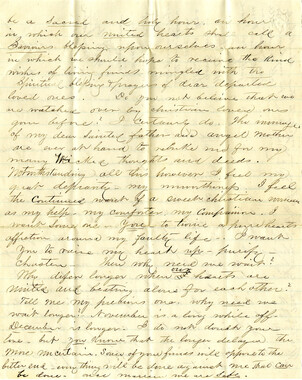 be a Sacred and holy hour, an hour
in which our united hearts shall call a
Saviours blessing upon ourselves. an hour
in which we should hope to receive the kind
wishes of living friends mingled with the
Spiritual blessing & prayers of dear departed
loved ones. Do you not believe that we
are watched over by christian loved ones
gone before? I certainly do. The memory
of my dear Sainted father and angel Mother
are ever at hand to rebuke me for my
many wicked thoughts and deeds.
Notwithstanding all this however I feel my
great depravity - my unworthiness. I feel
the Continued want of a sweet christian woman
as my help - my Comforter, my Companion. I
want Some one - You - to twine a pure hearts
affection around my faulty life. I want
you to raise my heart up - purify
Chasten. Then why need we wait?
Why defer longer when our hearts are
United and beating alone for each other?
Tell me my precious one, why need we
wait longer? November is a long while off -
December is longer. I do not doubt your
love, but you know that the longer delayed the
more uncertain. Some of your friends will oppose to the
bitter end - every thing will be done against me that can
be done. once married we are Safe.